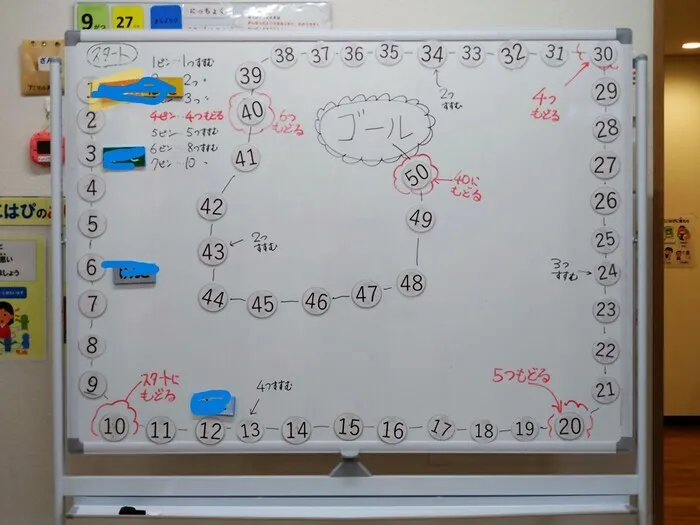 9がつ
27にち
にっちょく
スタート
1ピン…1つすすむ
2つ〃
3つ〃
4ピン…4つもどる
5ピン…5つすすむ
6ピン…8つすすむ
7ピン…10〃
1
2
3
4
5
6
7
8
9
スタートに
もどる
10
11
12
4つすすむ
13
14
15
16
17
18
19
5つもどる
20
21
22
23
3つ
すすむ
24
25
26
27
28
29
4つ
もどる
30
31
32
33
34
2つ
すすむ
35
36
37
38
39
40
6つ
もどる
41
42
43
2つ
すすむ
44
45
46
47
48
49
50
40に
もどる
ゴール
こはぴの